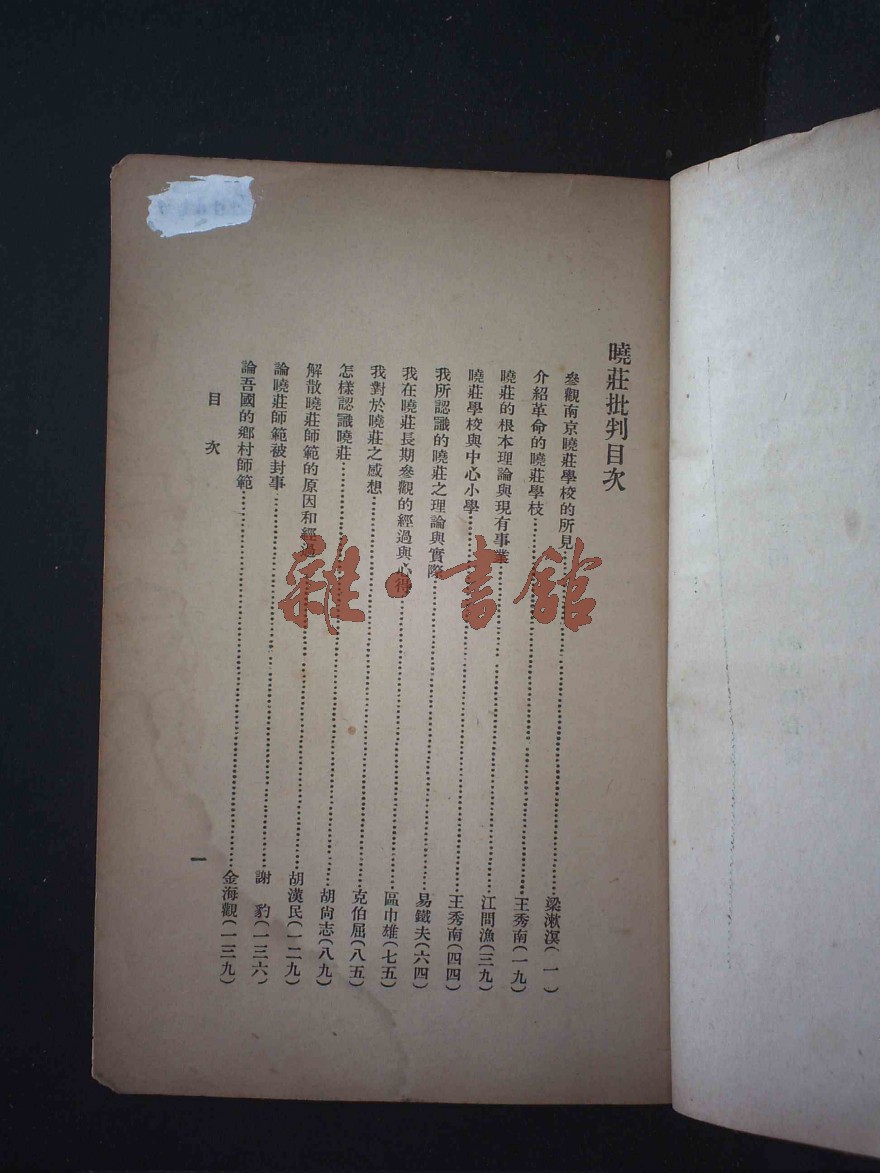 曉莊批判目次
參觀南京曉莊學校的所見……梁漱溟(一)
介紹革命的曉莊學枝……王秀南(一九)
曉莊的根本理論與現有事業……江問漁(三九)
曉莊學校與中心小學……王秀南(四四)
我所認識的曉莊之理論與實際……易鐵夫(六四)
我在曉莊長期參觀的經過與心得……區巾雄(七五)
我對於曉莊之感想……克伯屈(八五)
怎樣認識曉莊……胡尚志(八九)
解散曉莊師範的原因和經過……胡漢民(一二九)
論曉莊師範被封事……謝 豹(一三六)
論吾國的鄉村師範……金海觀(一三九)
目 次
一
雜·書館